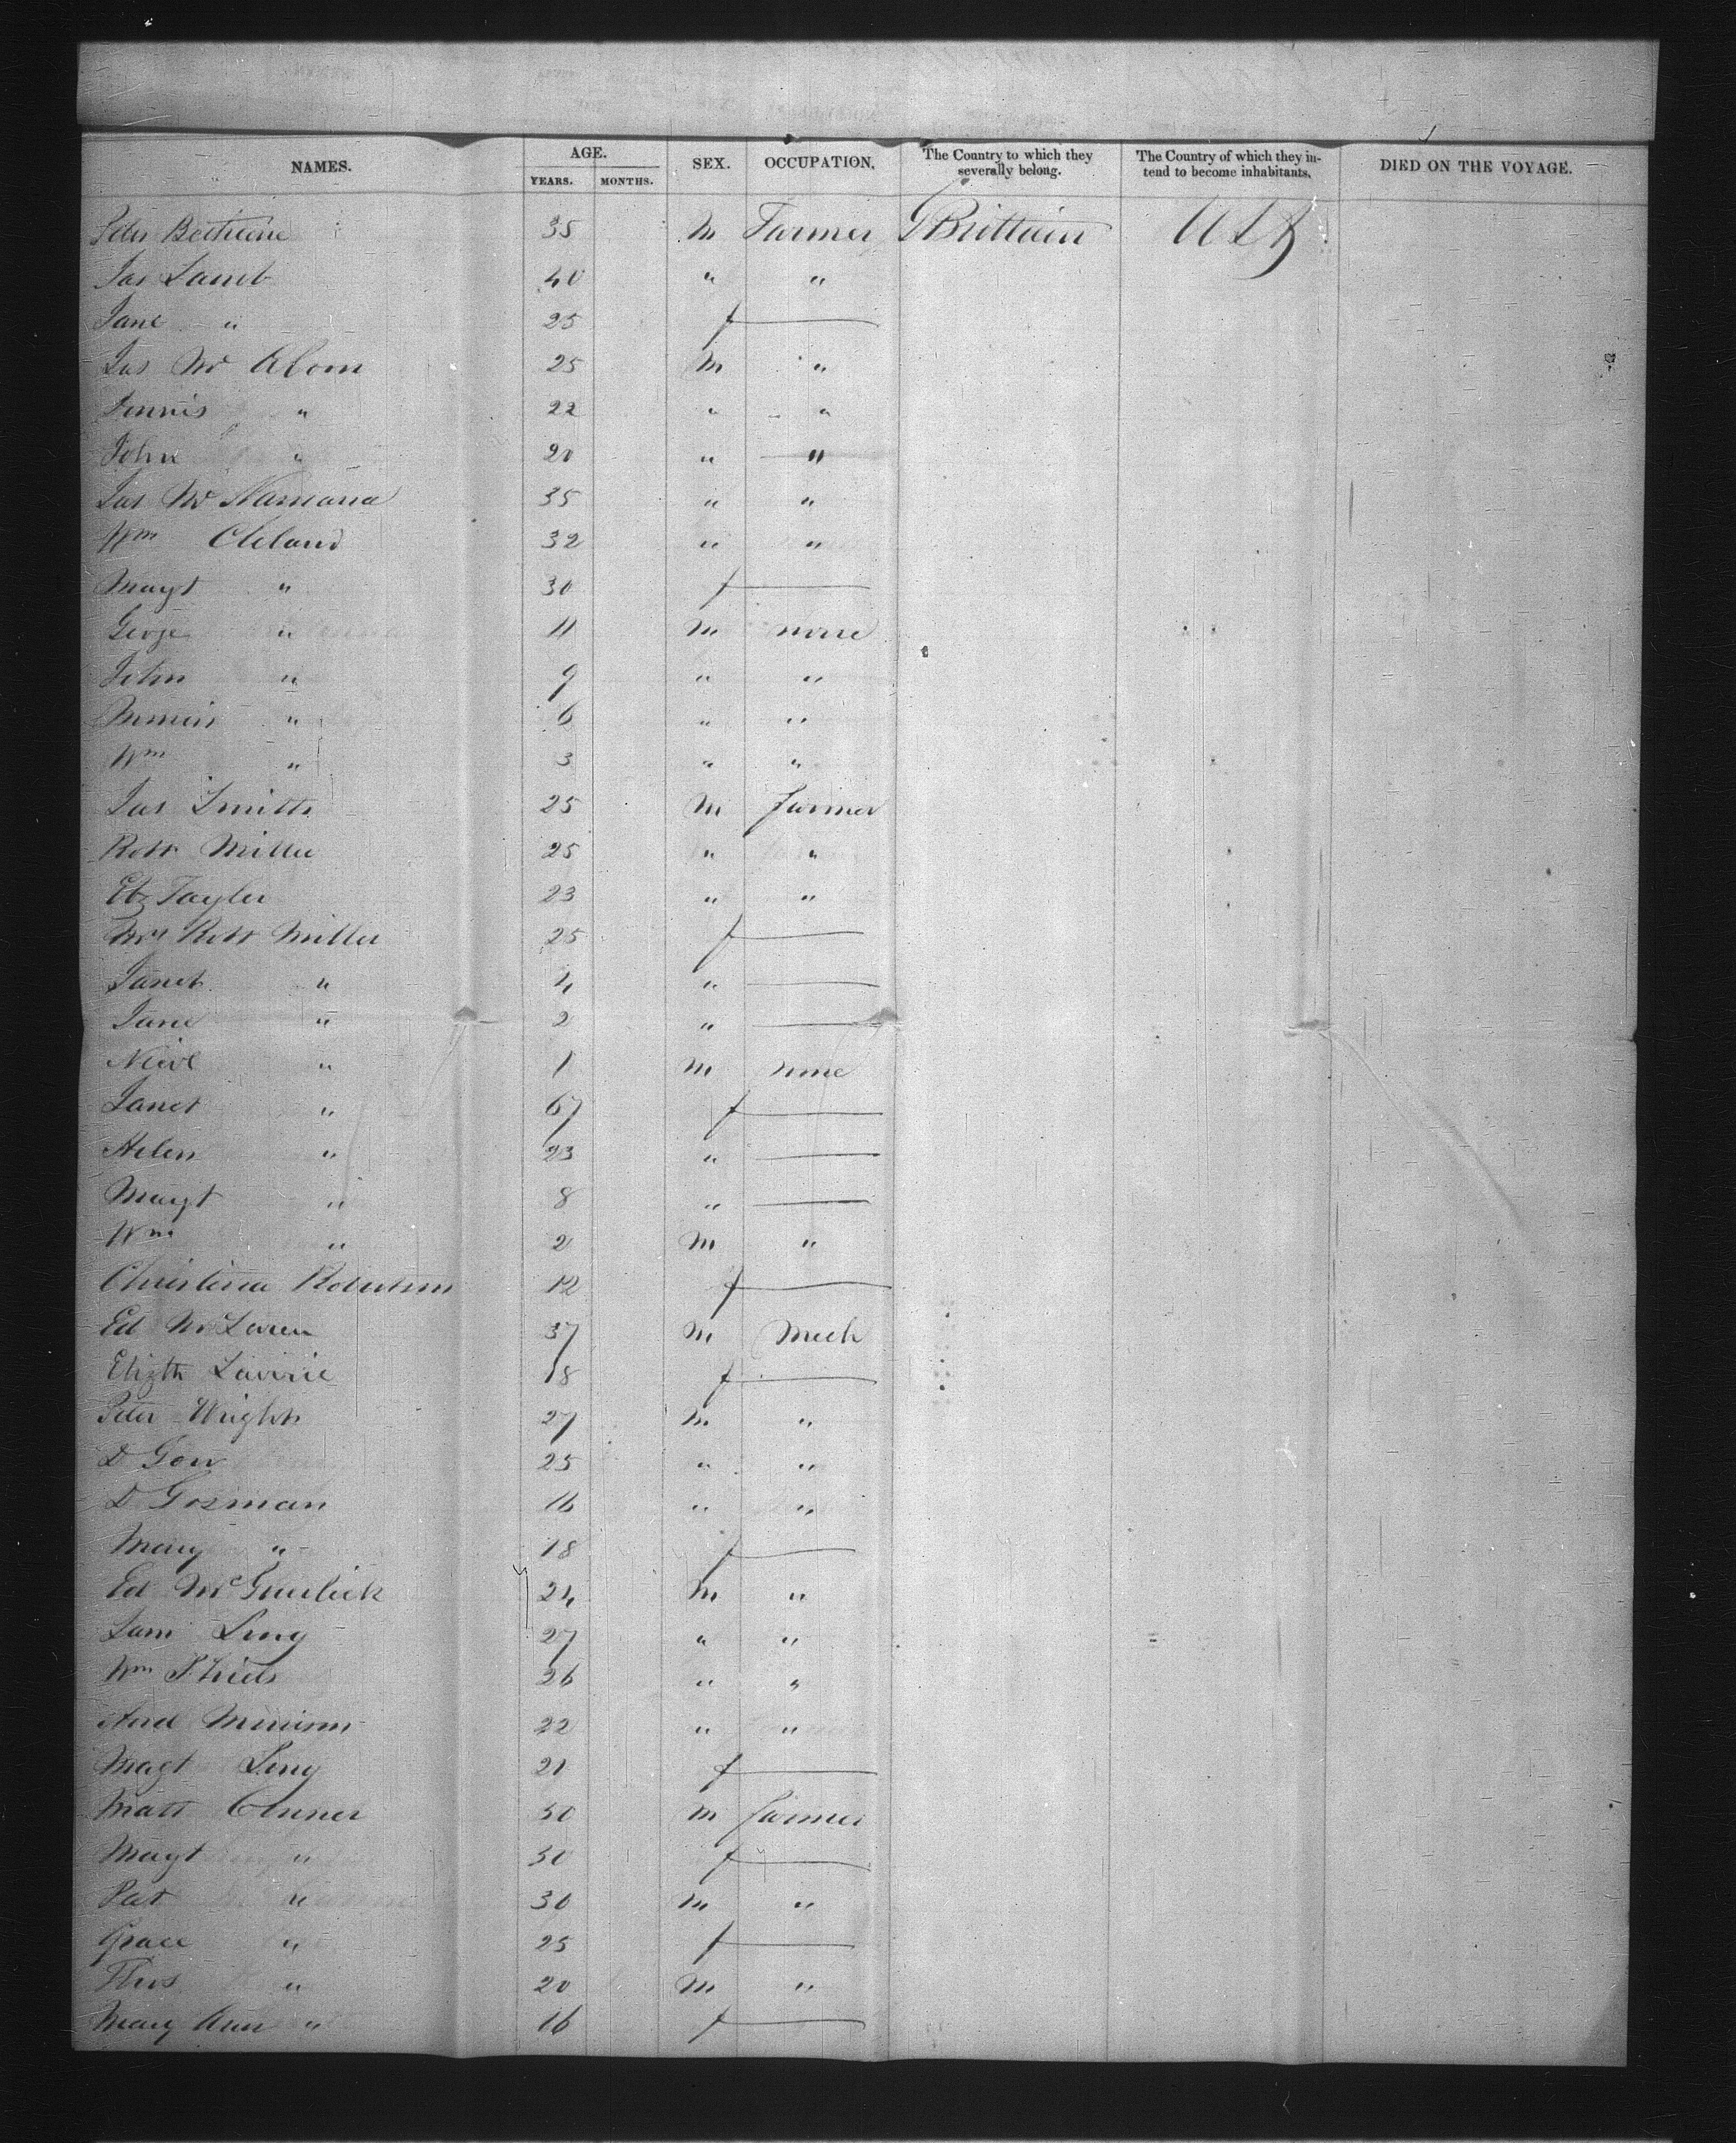 NAMES. AGE. YEARS. MONTHS. SEX. OCCUPATION. The Country to which they severally belong. The Country of which they intend to become inhabitants. DIED ON THE VOYAGE.
Peter Bethune 35 M Farmer G Brittain U S A
Jas Lamb 40 " "
Jane " 25 f
Jas Mc 25 M "
Dennis " 22 " "
John " 20 " "
Jas Mc Namara 35 " "
Wm Cleland 32 " "
Magt " 30 f
George " 11 M none
John " 9 " "
" 6 " "
Wm " 3 " "
Jas Smith 25 M farmer
Robt Miller 25 " "
Tayler 23 " "
Mrs Robt Miller 25 f
Janet " 4 "
Jane " 2 "
" 1 M none
Janet " 67 f
Helen " 23 "
Magt " 8 "
Wm " 2 M "
Christina Robertson 12 f
Ed McLaren 37 M Mech
Elizth Lawrie 18 f
Peter Wright 27 M "
D Gow 25 " "
D Gosman 16 " "
Mary " 18 f
Ed Mc 24 M "
Sam 27 " "
Wm 26 " "
22 " "
Magt 21 f
Matt Conner 50 M farmer
Magt " 50 f
Pat " 30 M "
Grace " 25 f
Thos " 20 M "
Mary Ann " 16 f